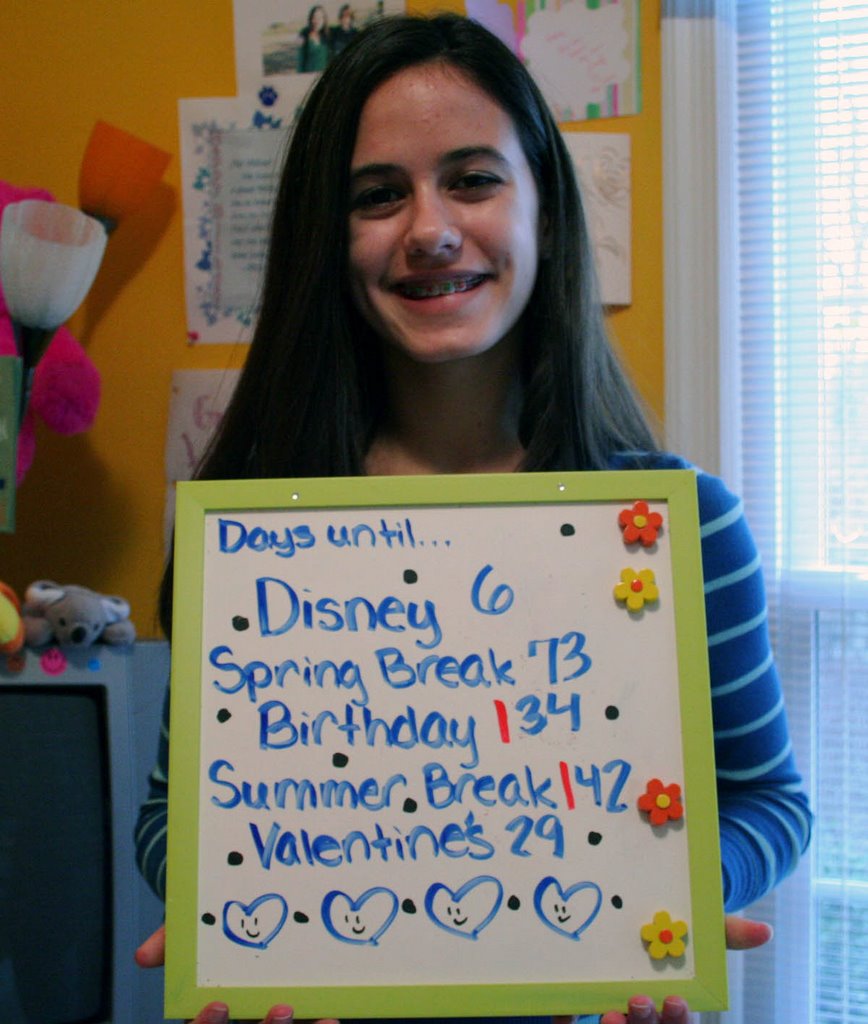 Days until...
Disney 6
Spring Break 73
Birthday 134
Summer Break 142
Valentine's 29